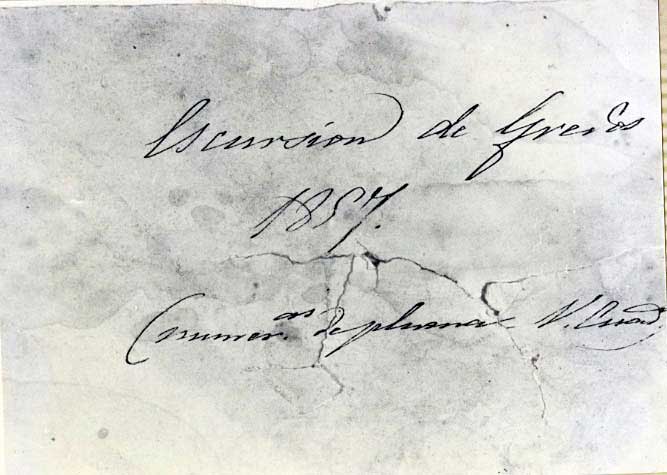 Escursion de Gredos
1857.
(numer.as de pluma V. Cuad